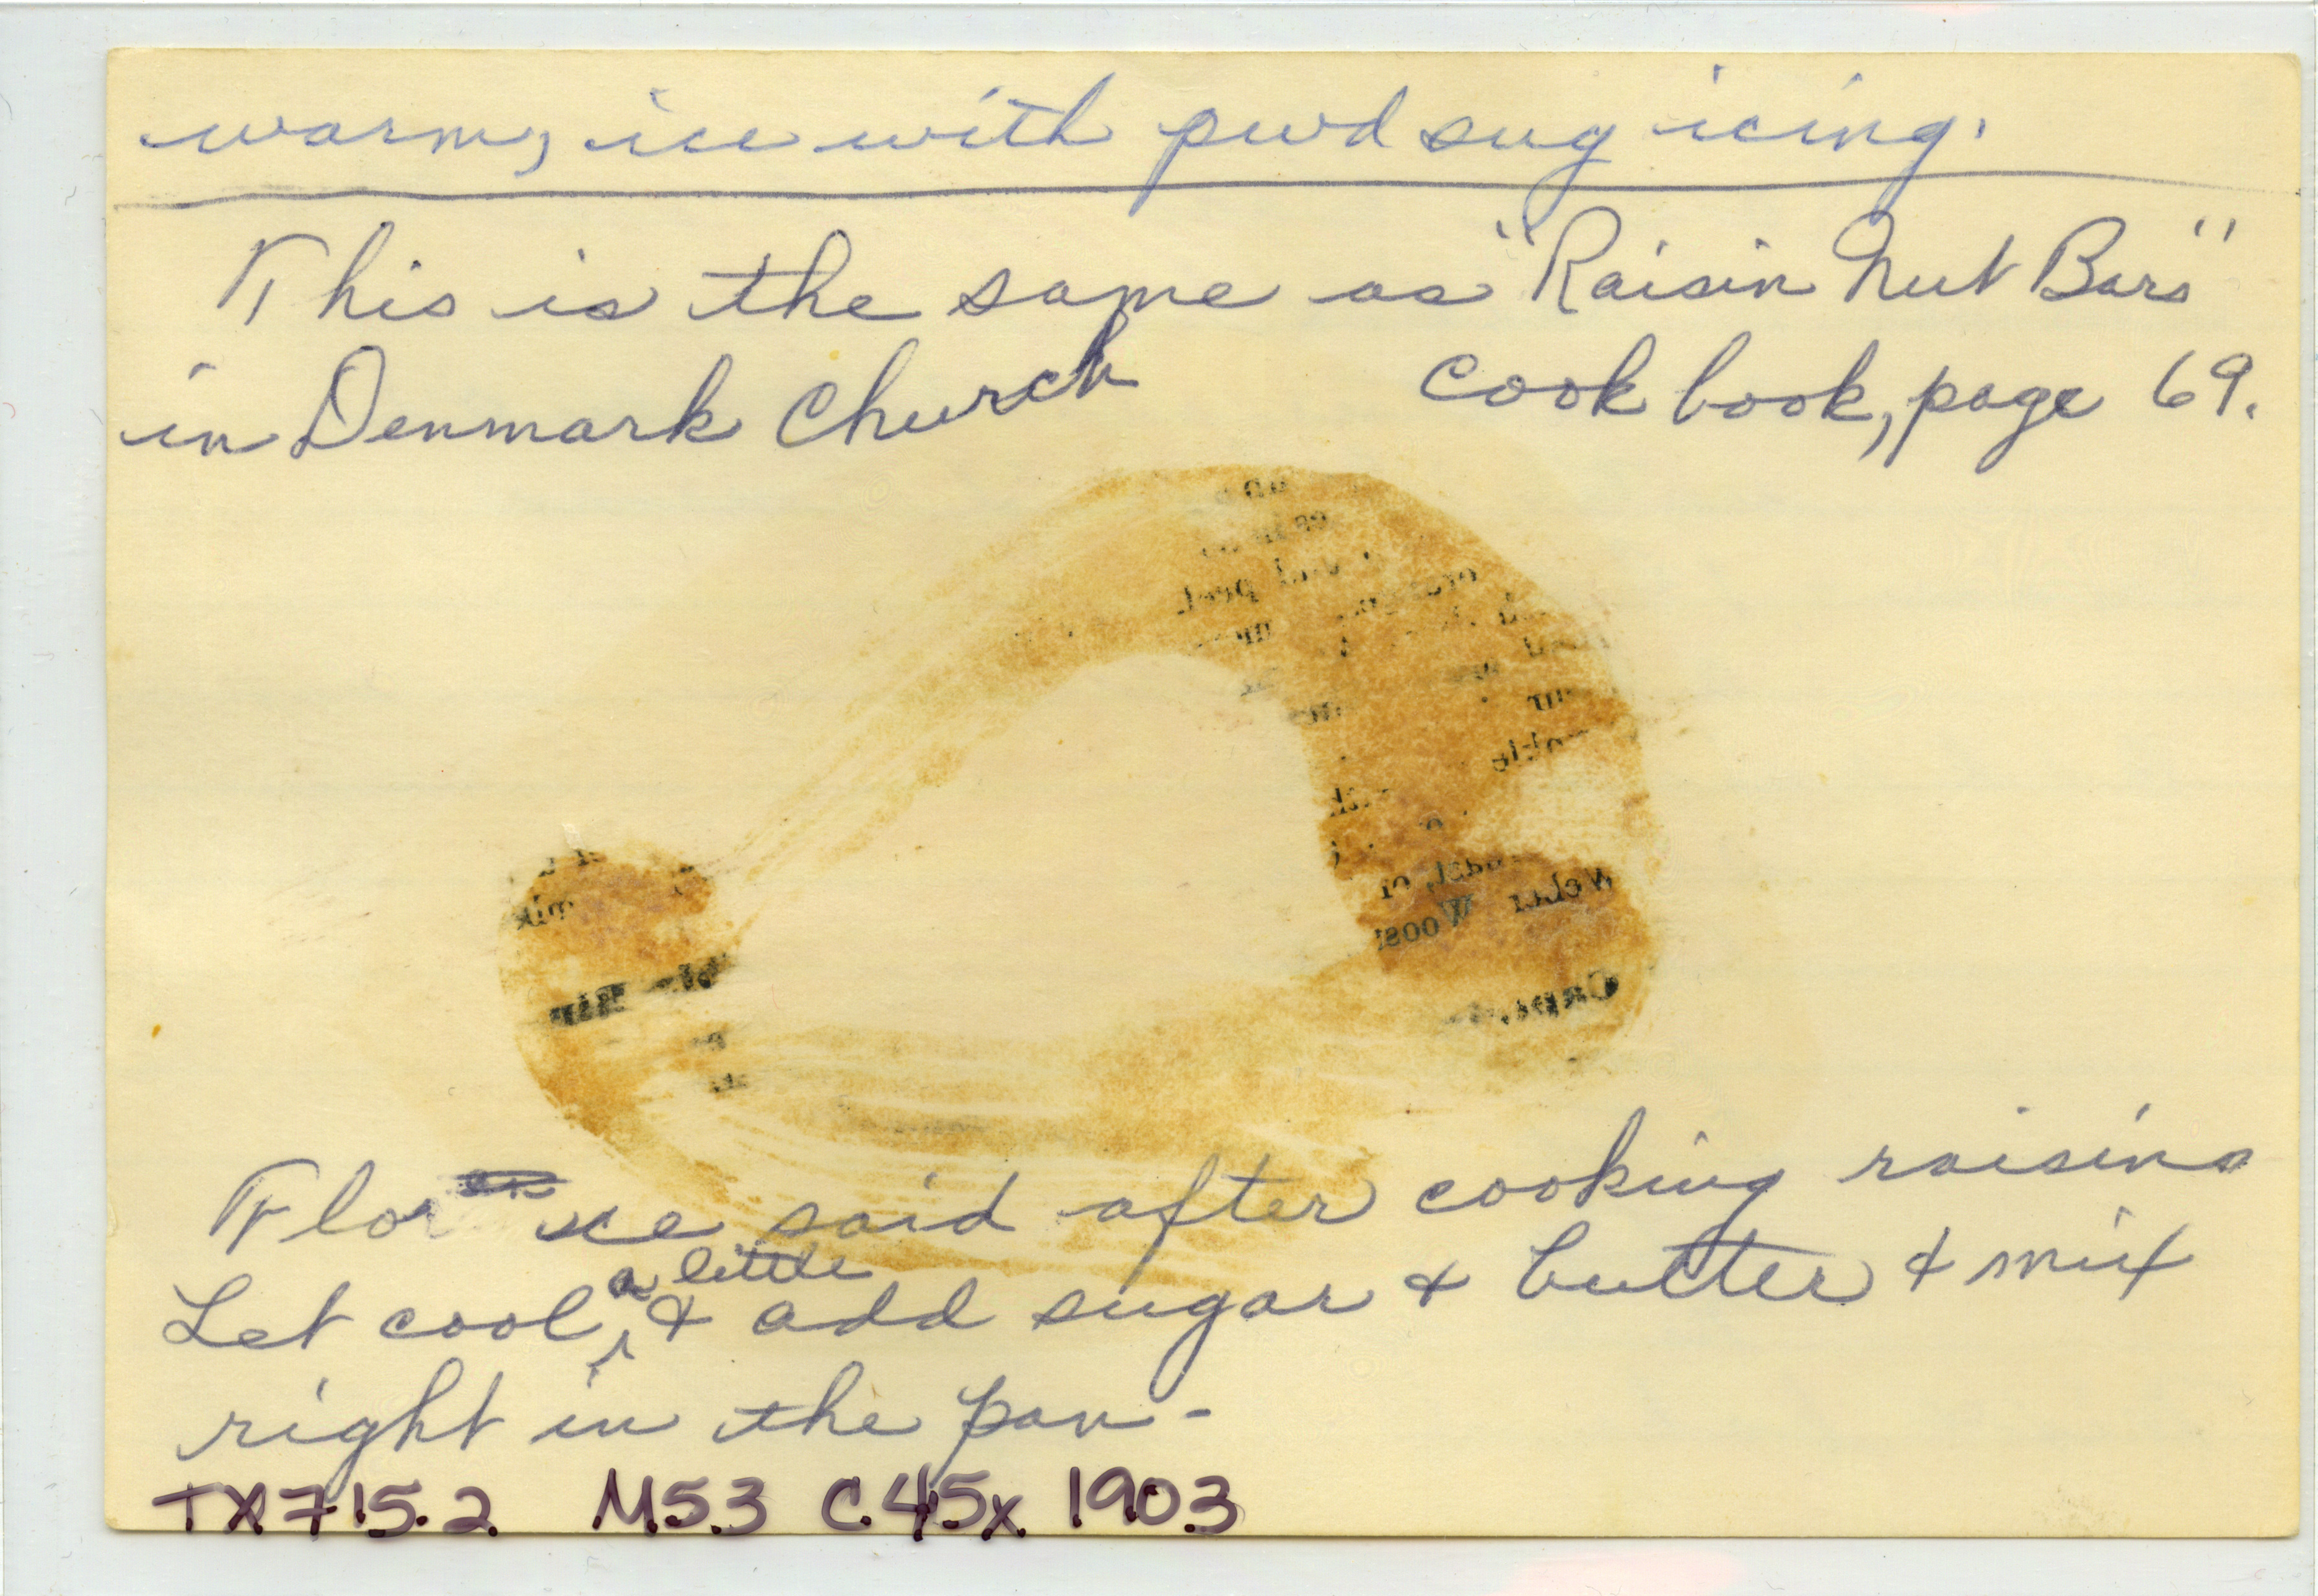 warm, ice with pwd sug icing.
This is the same as "Raisin Nut Bars"
in Denmark Church cook book, page 69.
said after cooking raisins
Let cool, a little & add sugar & butter & mix
right in the pan-
TX715.2 M53 C45x 1903